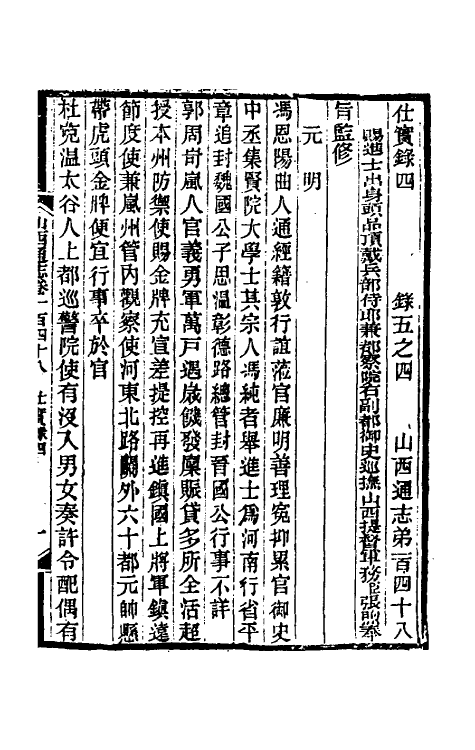 仕實錄四 錄五之四 山西通志第一百四十八
賜進士出身頭品頂戴兵部侍郎兼都察院右副都御史巡撫山西提督軍務臣張煦奉
旨監修
元 明
馮恩陽曲人通經籍敦行誼蒞官廉明善理寃抑累官御史
中丞集賢院大學士其宗人馮純者舉進士爲河南行省平
章追封魏國公子思溫彰德路總管封晉國公行事不詳
郭周岢嵐人官義勇軍萬戸遇歲饑發廩賑貸多所全活超
授本州防禦使賜金牌充宣差提控再進鎭國上將軍鎭遠
節度使兼嵐州管內觀察使河東北路關外六十都元帥懸
帶虎頭金牌便宜行事卒於官
杜克温太谷人上都巡警院使有沒入男女奏許令配偶有
山西通志卷一百四十八 仕實錄四 一